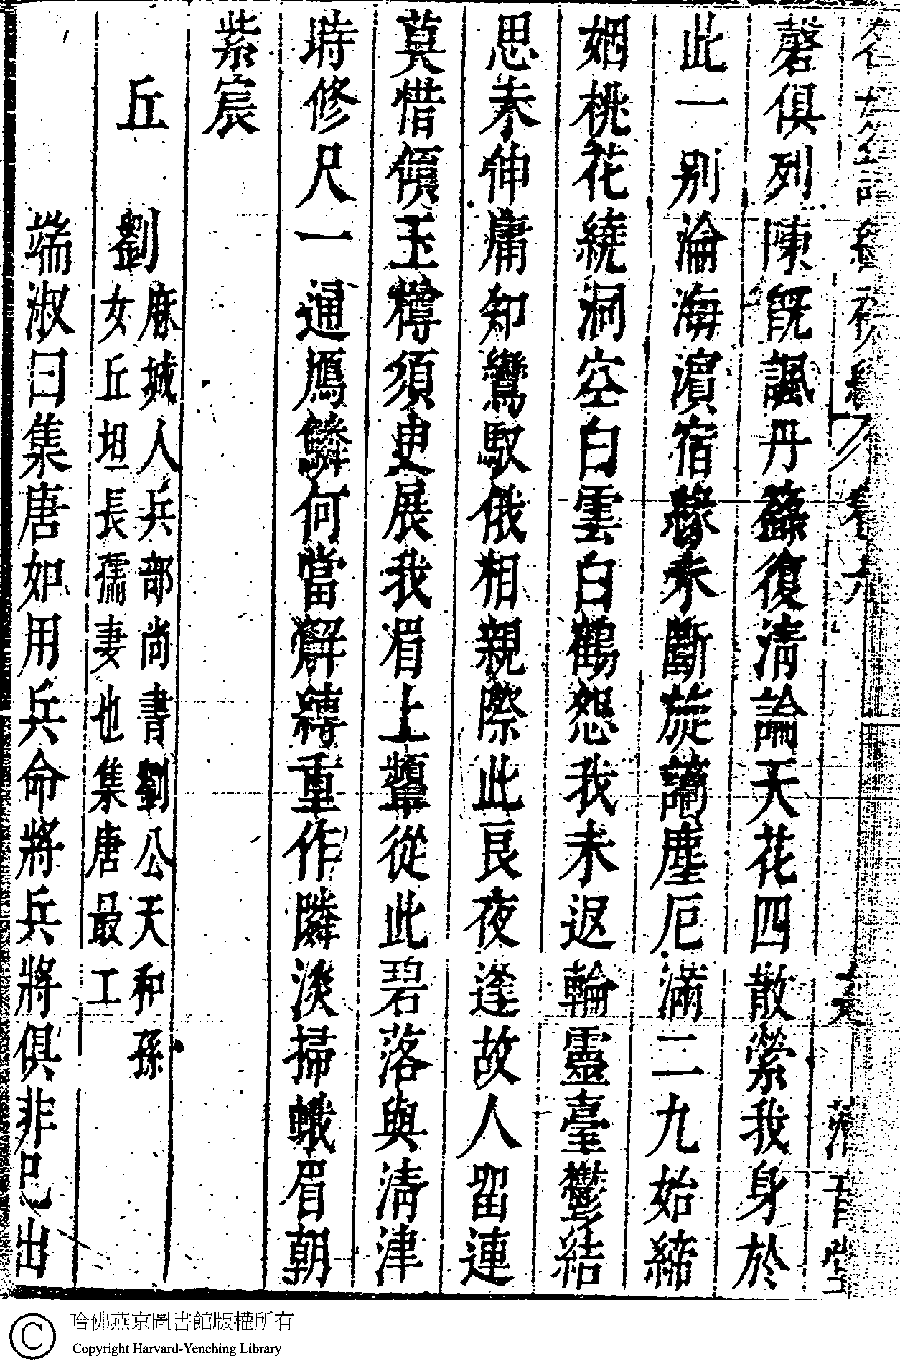 磬俱列陳既諷丹蘂復淸論天花四散縈我身於
此一别淪海濵宿縁未斷旋謫塵厄滿二九始締
姻桃花繞洞空白雲白鶴怨我未返輪靈臺鬱結
思未伸庸知鸞馭俄相親際此良夜逢故人畱連
莫惜傾玉樽須臾展我眉上顰從此碧落與淸津
時修尺一通鴈鱗何當解縳重作隣淡掃蛾眉朝
紫宸
丘劉
麻城人兵部尚書劉公天和孫
女丘坦長孺妻也集唐最工
端淑曰集唐如用兵命將兵將俱非已出
哈佛燕京圖書館版權所有
Copyright Harvard-Yenching Library